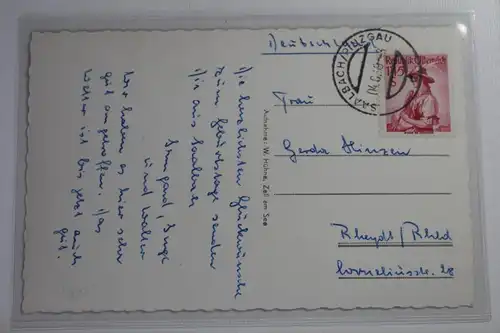 Die herzlichsten Glückwünsche
zum Geburtstage senden
Dir aus Saalbach
Irmgard, Inge
und Walter
Wir haben es hier sehr
gut angetroffen. Das
Wetter ist bis jetzt auch
gut.
Aufnahme: W. Hühne, Zell am See
Deutschland
SAALBACH/PINZGAU
Republik Österreich
1.45 S
Frau
Gerda Hinzen
Rheydt/Rhld
Corneliusstr. 28